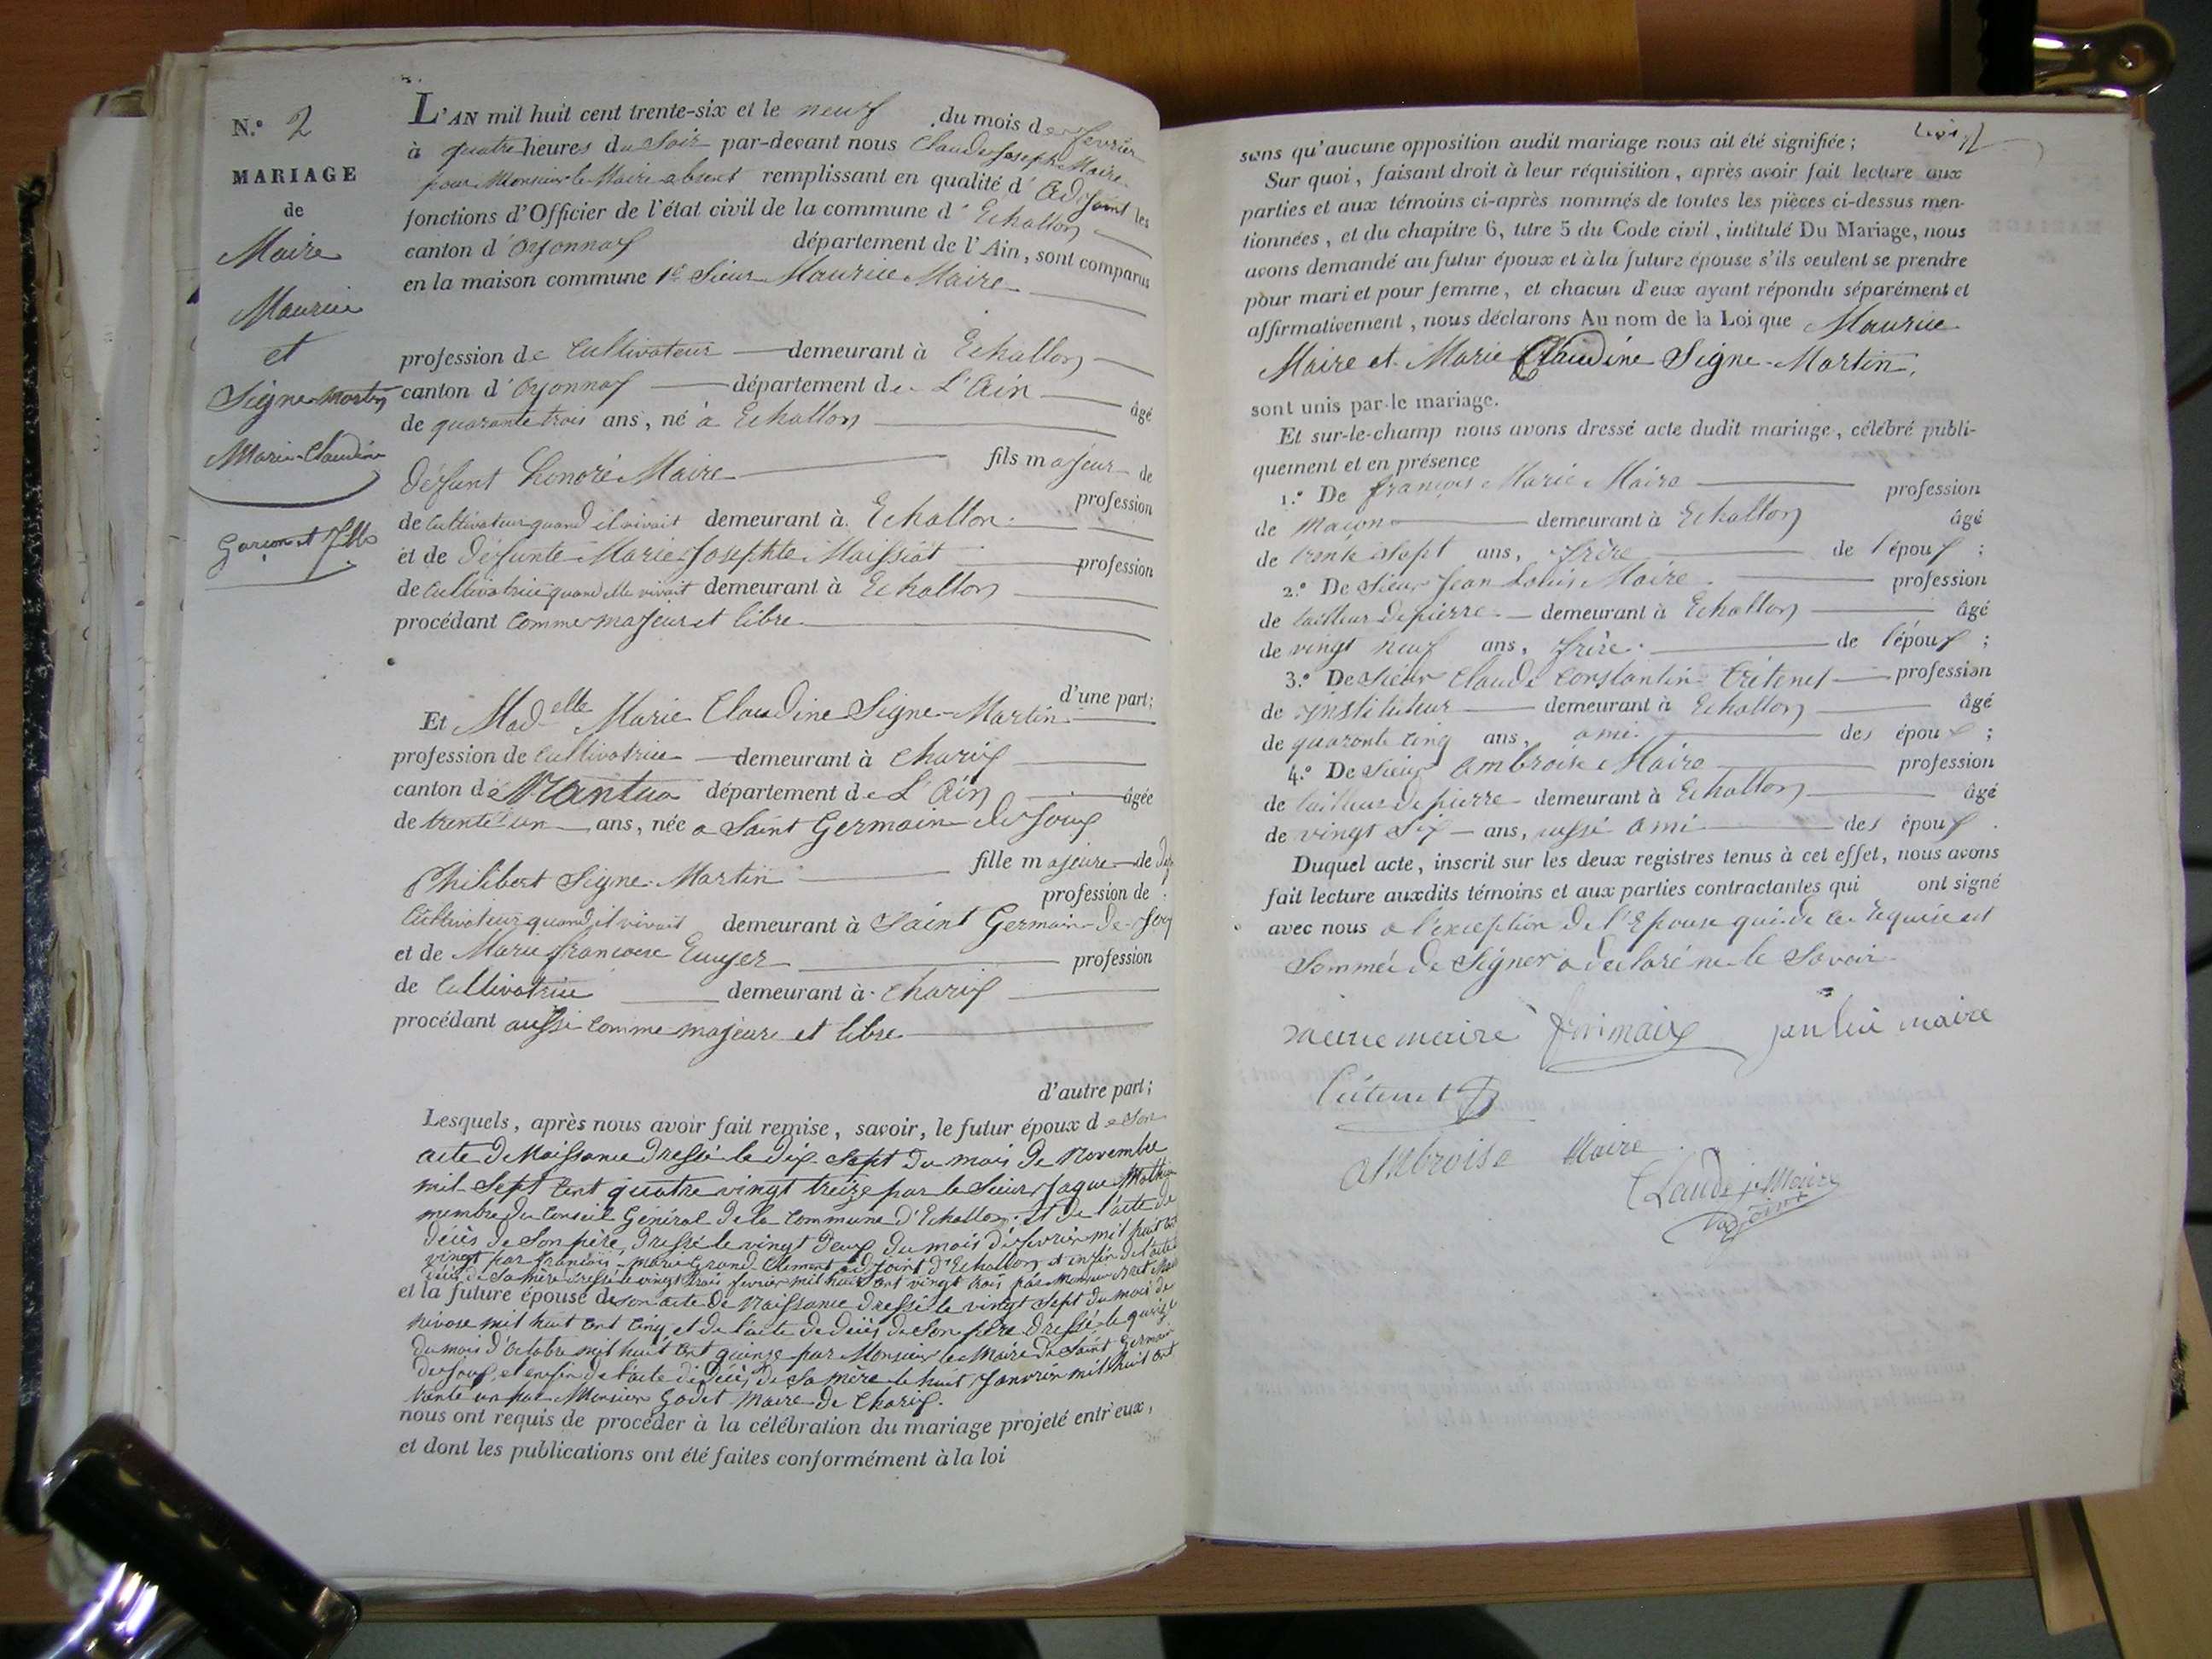 N.° 2
MARIAGE
de
Maire
Maurice
et
Signe-Martin
Marie-Claudine
Garçon et fille
L'AN mil huit cent trente-six et le neuf du mois de fevrier
à quatre heures du soir par-devant nous Claude Joseph Maire
pour Monsieur le Maire absent remplissant en qualité d'adjoint les
fonctions d'Officier de l'état civil de la commune d'Echallon
canton d'oyonnax département de l'Ain, sont comparus
en la maison commune 1° Sieur Maurice Maire
profession de Cultivateur demeurant à Echallon
canton d'oyonnax département de L'Ain âgé
de quarante trois ans, né à Echallon
fils majeur de
défunt honoré Maire profession
de Cultivateur quand il vivait demeurant à Echallon
et de défunte Marie Josephte Maissiat profession
de Cultivatrice quand elle vivait demeurant à Echallon
procédant comme majeur et libre
d'une part;
Et Mad.elle Marie Claudine Signe-Martin
profession de Cultivatrice demeurant à Charix
canton de Nantua département de L'Ain âgée
de trente un ans, née a Saint Germain de Joux
fille majeure de
Philibert Signe-Martin profession de
Cultivateur quand il vivait demeurant à Saint Germain-de-Joux
et de Marie francoise profession
de Cultivatrice demeurant à Charix
procédant aussi comme majeure et libre
d'autre part;
Lesquels, après nous avoir fait remise, savoir, le futur époux de son
acte de Naissance dressé le dix-sept du mois de Novembre
mil sept cent quatre vingt treize par le Sieur Jaque Mathieu
membre du Conseil Général de la Commune d'Echallon et de l'acte de
décès de son père, dressé le vingt deux du mois de fevrier mil huit cent
vingt par françois-marie Grand-Clement adjoint d'Echallon et enfin de l'acte de
décès de sa mère dressé le vingt trois fevrier mil huit cent vingt trois par Monsieur
et la future épouse de son acte de Naissance dressé le vingt sept du mois de
nivose mil huit cent cinq et de l'acte de décès de son père dressé le quinze
du mois d'octobre mil huit cent quinze par Monsieur le Maire de Saint Germain
de Joux, et enfin de l'acte de décès de sa mère le huit Janvier mil huit cent
trente un par Monsieur Godet Maire de Charix.
nous ont requis de procéder à la célébration du mariage projeté entr'eux,
et dont les publications ont été faites conformément à la loi
sans qu'aucune opposition audit mariage nous ait été signifiée;
Sur quoi, faisant droit à leur réquisition, après avoir fait lecture aux
parties et aux témoins ci-après nommés de toutes les pièces ci-dessus men-
tionnées, et du chapitre 6, titre 5 du Code civil, intitulé Du Mariage, nous
avons demandé au futur époux et à la future épouse s'ils veulent se prendre
pour mari et pour femme, et chacun d'eux ayant répondu séparément et
affirmativement, nous déclarons Au nom de la Loi que Maurice
Maire et Marie Claudine Signe-Martin,
sont unis par le mariage.
Et sur-le-champ nous avons dressé acte dudit mariage, célébré publi-
quement et en présence
1.° De françois Marie Maire profession
de Maçon demeurant à Echallon âgé
de trente sept ans, frère de l'époux;
2.° De Sieur Jean Louis Maire profession
de tailleur de pierre demeurant à Echallon âgé
de vingt neuf ans, frère de l'époux;
3.° De Sieur Claude Constantin Tritenet profession
de instituteur demeurant à Echallon âgé
de quarante cinq ans, ami des époux;
4.° De Sieur Ambroise Maire profession
de tailleur de pierre demeurant à Echallon âgé
de vingt six ans, aussi ami des époux.
Duquel acte, inscrit sur les deux registres tenus à cet effet, nous avons
fait lecture auxdits témoins et aux parties contractantes qui ont signé
avec nous a l'exception de l'Epouse qui de ce requise et
Sommée de Signer a declaré ne le Savoir
maire jan lui maire
Ambroise Maire
Claude j. Maire
adjoint